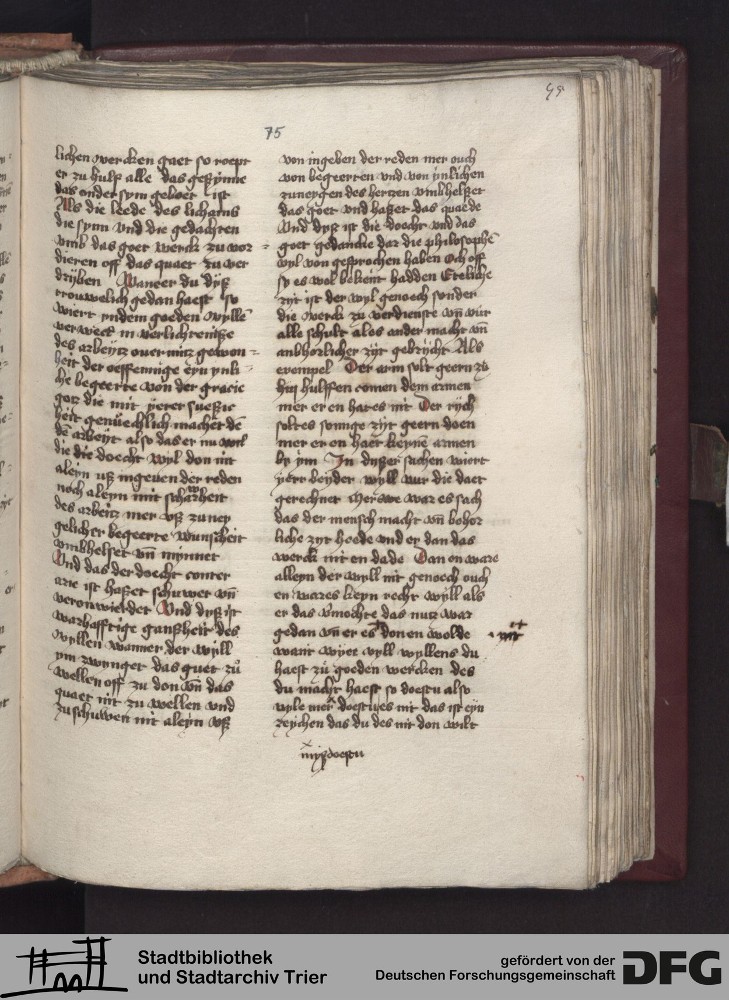 75
lichen wercken gaet so roept
er zu hulf alle das gesynne
das onder sym geboet ist
Als die leede des lichams
die synn vnd die gedachten
vmb das goet werck zu vor
dieren off das quaet zu ver
dryben Waneer du dyß
trouwelich gedan haest so
wiert yndem goeden wylle
verweckt in verlichtenisse
des arbeytz ouermitz gewon
heit der oeffennige eyn ynli
che begeerte von der gracie
gotz die mit yerer sueßic
heit genüechlich machet de
de arbeyt also das er nu wil
die doecht wyl don nit
aleyn uß ingeuen der reden
noch aleyn mit scharheit
des arbeitz mer uß zuney
gelicher begeerte wunscheit
vmbhelset vn mynnet
Vnd das der doecht conter
arie ist haßet schuwet vn
veronwierdet Vnd dyß ist
warhafftige gantzheit des
wyllen wanner der wyll
ym zwynget das guet zů
wellen off zu don vn das
quaet nit zu wellen vnd
zuschuwen nit aleyn uß
von ingeben der reden mer ouch
von begeerten vnd von ynlichen
zuneygen des hertzen vmbhelßet
das goet vnd haßet das quaede
Vnd dyß ist die doocht vnd das
goet gedancke dar die philosophe
wyl von gesprochen haben Och off
sy es wol bekent hadden Eteliche
zyt ist der wyl genoech sonder
die werck zu verdienste vn vur
alle schult alos ander macht vn
anbehorlicher zyt gebrycht Als
exempel Der arm solt geern zu
huß hulffen comen dem armen
mer er en hat es nit Der rych
soltes somnge zyt geern doen
mer er en haet keynē armen
by ym In dyßer sachen wiert
yerr beyder wyll vur die daet
gerechnet Mer owe war es sach
das der mensch macht vn behor
liche zyt heede vnd er dan das
werck nit en dade Dan en ware
alleyn der wyll nit genoech ouch
en wares keyn recht wyll als
er das vmochte das nutz war
gedan vn er es don en wolde
nit
want wyet vyll wyllens du
haest zü goeden wercken des
du macht haest so doestu also
vyle mer doestu es nit das ist eyn
zeychen das du des nit don wilt
myßdoestu
Stadtbibliothek
und Stadtarchiv Trier
gefördert von der
Deutschen Forschungsgemeinschaft
DFG